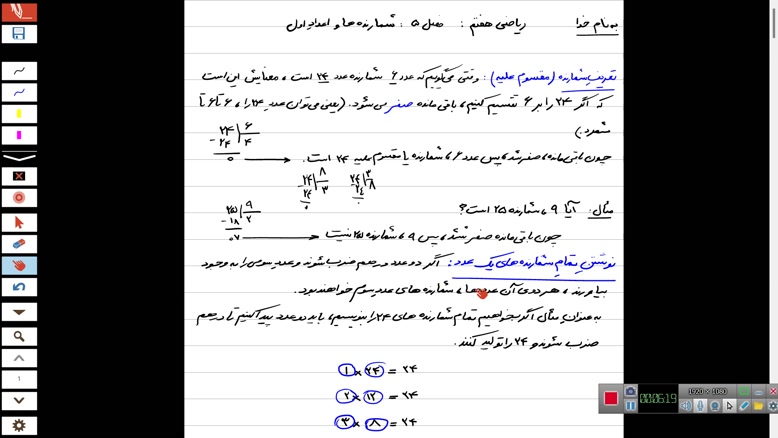 به نام خدا ریاضی هفتم: فصل ۵: شمارنده ها و اعداد اول
تعریف شمارنده (مقسوم علیه): وقتی می گوییم که عدد ۶ شمارنده عدد ۲۴ است، معنایش این است
که اگر ۲۴ را بر ۶ تقسیم کنیم، باقی مانده صفر می شود. (یعنی می توان عدد ۲۴ را، ۶ تا ۶ تا
شمرد.)
۲۴ | ۶
- ۲۴ | ۴
۰
چون باقی مانده، صفر شد، پس عدد ۶، شمارنده یا مقسوم علیه ۲۴ است.
۲۴ | ۸
۲۴ | ۳
۰
۲۴ | ۳
۲۴ | ۸
۰
مثال: آیا ۹، شمارنده ۲۵ است؟
۲۵ | ۹
- ۱۸ | ۲
۰۷
چون باقی مانده صفر نشد، پس ۹، شمارنده ۲۵ نیست
نوشتن تمام شمارنده های یک عدد: اگر دو عدد در هم ضرب شوند و عدد سومی را به وجود
بیاورند، هر دوی آن عددها، شمارنده های عدد سوم خواهند بود.
به عنوان مثال اگر بخواهیم تمام شمارنده های ۲۴ را بنویسیم، باید دو عدد پیدا کنیم تا در هم
ضرب شوند و ۲۴ را تولید کنند.
۱ × ۲۴ = ۲۴
۲ × ۱۲ = ۲۴
۳ × ۸ = ۲۴
1920 × 1080
00:06:19
1